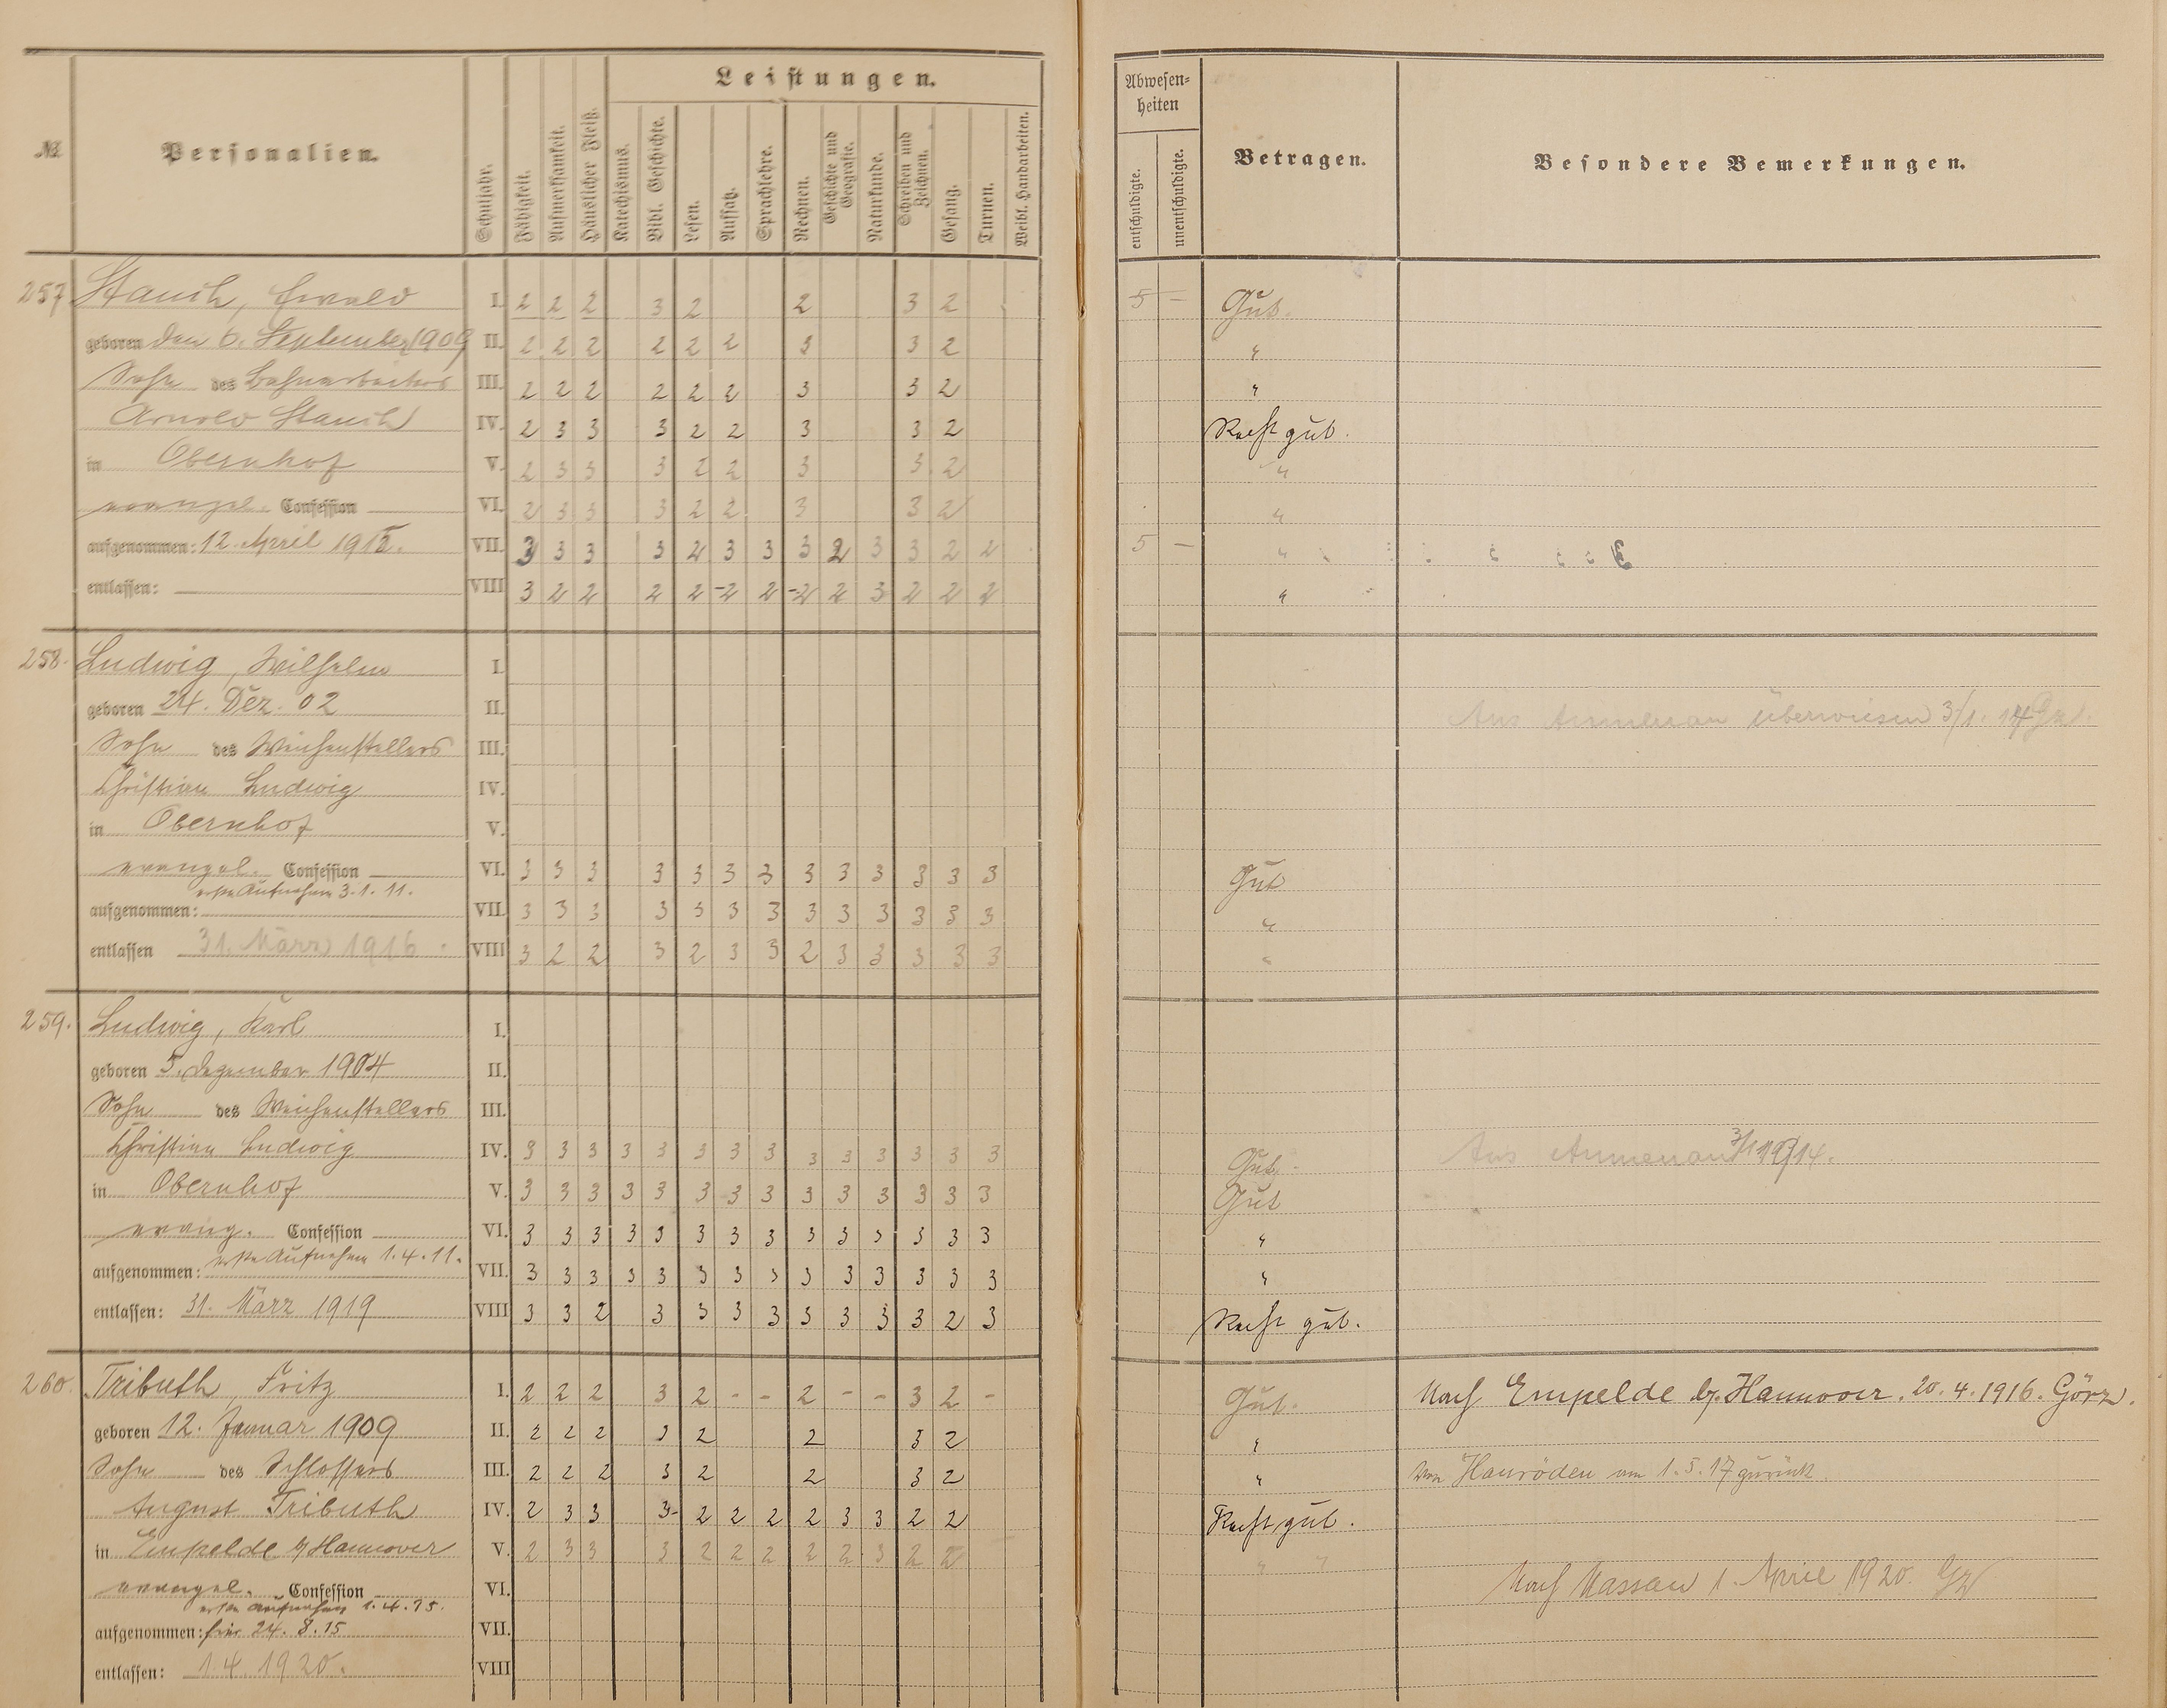 Leistungen.
№
Personalien.
Schuljahr.
Fähigkeit.
Aufmerksamkeit.
Häuslicher Fleiß.
Katechismus.
Bibl. Geschichte.
Lesen.
Aufsatz.
Sprachlehre.
Rechnen.
Geschichte und Geografie.
Naturkunde.
Schreiben und Zeichnen.
Gesang.
Turnen.
Weibl. Handarbeiten.
Abwesenheiten
entschuldigte.
unentschuldigte.
Betragen.
Besondere Bemerkungen.
257 Stauch, Ewald I. 2 2 2 3 2 2 3 2 5 – Gut.
geboren den 6. September 1909 II. 2 2 2 2 2 2 3 3 2 "
Sohn des Bahnarbeiters III. 2 2 2 2 2 2 3 3 2 "
Arnold Stauch IV. 2 3 3 3 2 2 3 3 2 Recht gut.
in Obernhof V. 2 3 3 3 2 2 3 3 2 "
evangel. Confession VI. 2 3 3 3 2 2 3 3 2 "
aufgenommen: 12. April 191 VII. 3 3 3 3 2 3 3 3 2 3 3 2 2 5 – "
entlassen: VIII 3 2 2 2 2 -2 2 -2 2 3 2 2 2 "
258. Ludwig, Wilhelm I.
geboren 24. Dez. 02 II. Aus überwiesen 3/1. 14
Sohn des Weichenstellers III.
Christian Ludwig IV.
in Obernhof V.
evangel. Confession VI. 3 3 3 3 3 3 3 3 3 3 3 3 3 Gut
erste Aufnahme 3.1.11.
aufgenommen: VII. 3 3 3 3 3 3 3 3 3 3 3 3 3 "
entlassen 31. März 1916. VIII 3 2 2 3 2 3 3 2 3 3 3 3 3 "
259. Ludwig, Karl I.
geboren 5. Dezember 1904 II.
Sohn des Weichenstellers III.
Christian Ludwig IV. 3 3 3 3 3 3 3 3 3 3 3 3 3 3 Gut. Aus
in Obernhof V. 3 3 3 3 3 3 3 3 3 3 3 3 3 3 Gut
evang. Confession VI. 3 3 3 3 3 3 3 3 3 3 3 3 3 3 "
erste Aufnahme 1.4.11.
aufgenommen: VII. 3 3 3 3 3 3 3 3 3 3 3 3 3 3 "
entlassen: 31. März 1919 VIII 3 3 2 3 3 3 3 3 3 3 3 2 3 Recht gut.
260. Tributh, Fritz I. 2 2 2 3 2 - - 2 - - 3 2 - Gut. Nach Empelde b/ Hannover. 20.4.1916. Görz.
geboren 12. Januar 1909 II. 2 2 2 3 2 2 3 2 "
Sohn des Schlossers III. 2 2 2 3 2 2 3 2 " Von am 1.5.17 zurück.
August Tributh IV. 2 3 3 3- 2 2 2 2 3 3 2 2 Recht gut.
in Empelde b/ Hannover V. 2 3 3 3 2 2 2 2 2 3 2 2 " "
evangel. Confession VI. Nach Nassau 1. April 1920.
erste Aufnahme 1.4.15.
aufgenommen: hier 24. 8. 15 VII.
entlassen: 1.4.1920. VIII